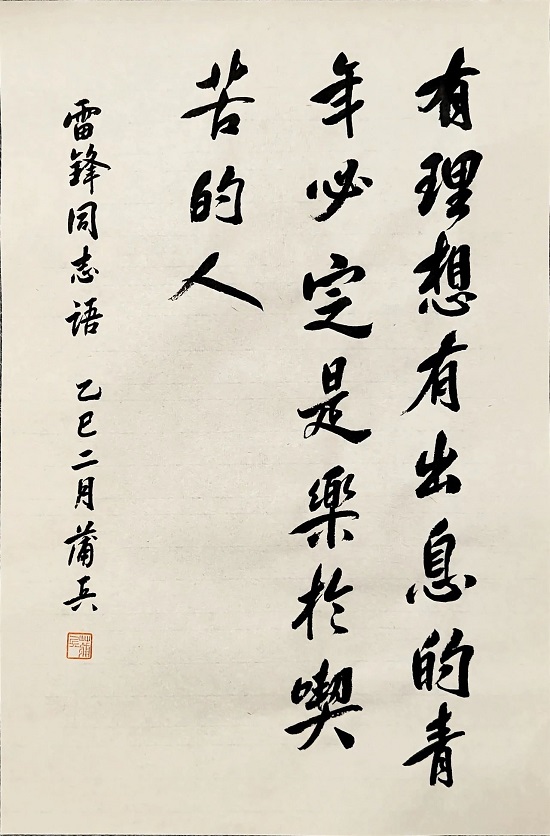 有理想有出息的青
年必定是樂於喫
苦的人
雷锋同志语 乙巳二月 蒲兵